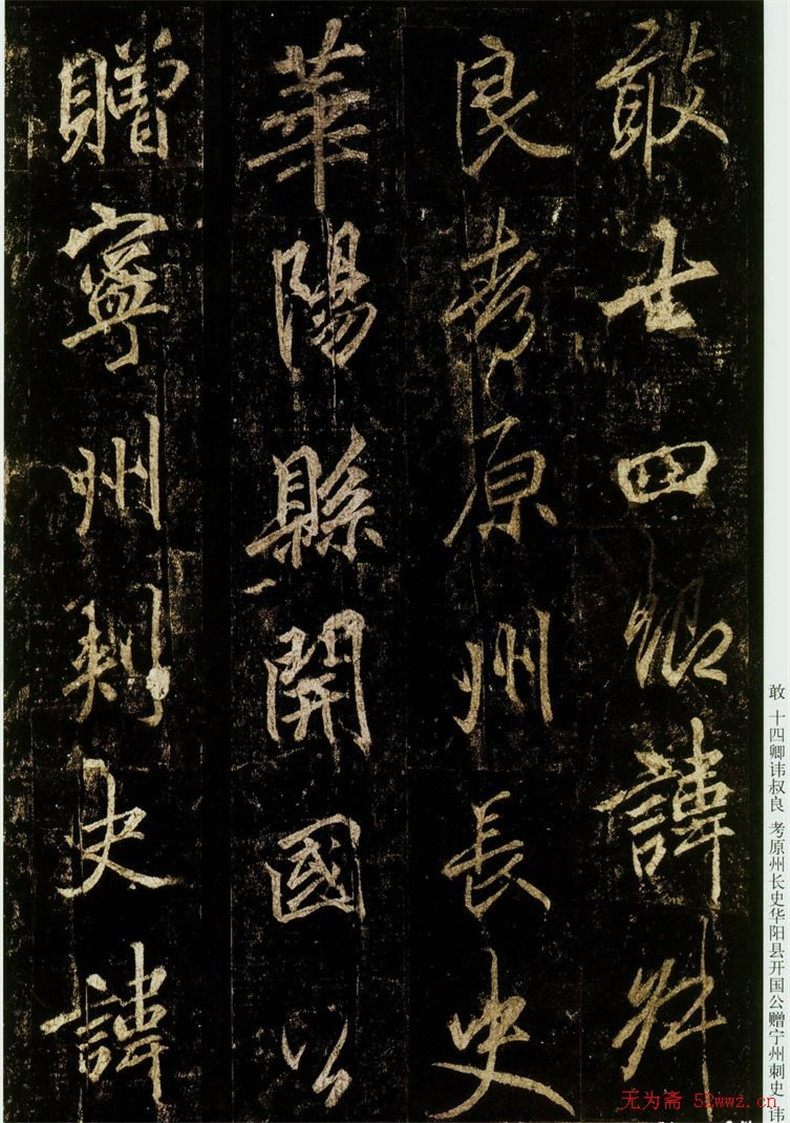 敢士四卿諱叔
良考原州長史
華陽縣開國公
贈寧州刺史諱
敢 十四卿讳叔良 考原州长史华阳县开国公赠宁州刺史 讳
无为斋 52wwz.cn